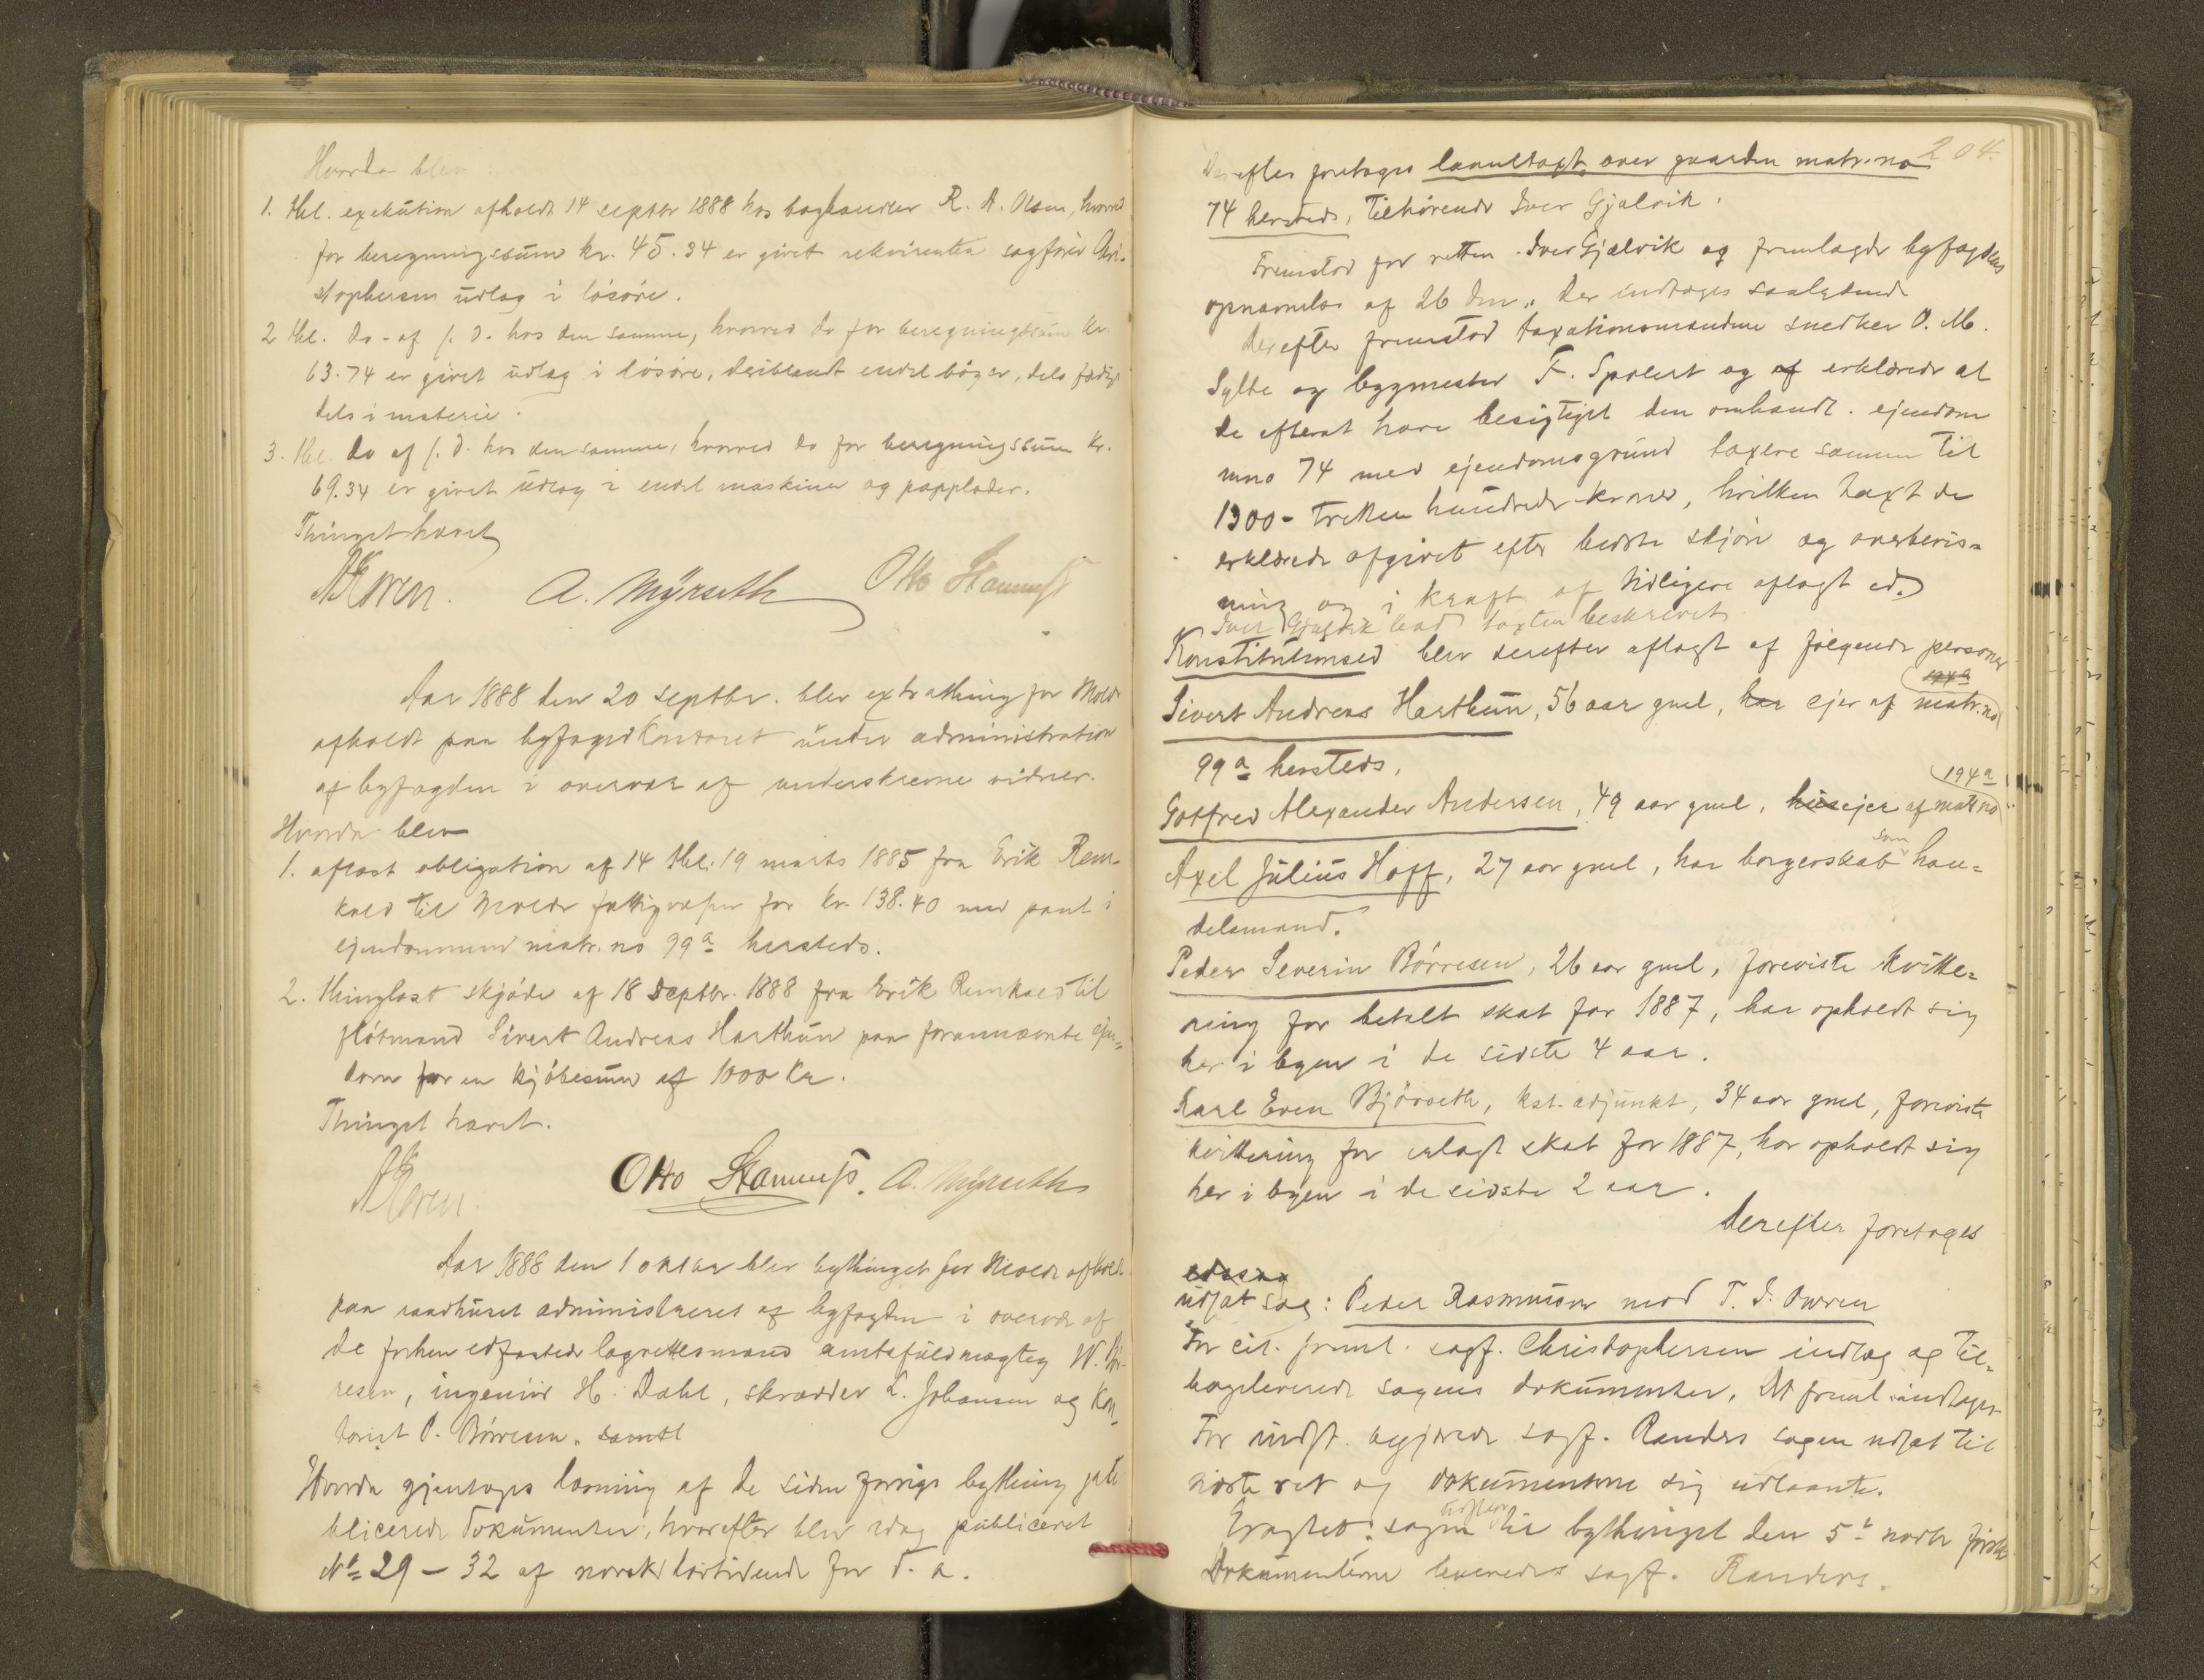 Hvorda blev
1. thl. exekution afholdt 14 septbr 1888 hos boghandler R. A. Olsen, hvorved
for beregningssum kr. 45.34 er givet rekvirenten sagfører Chri-
stophersen udlag i løsøre.
2 thl. do - af s. D. hos den samme, hvorved do for beregningssum kr.
63.74 er givet udlag i løsøre, deriblandt endel bøger, dels færdige
dels i materie.
3. thl. do af s. D. hos den samme, hvorved do for beregningssum kr.
69.34 er givet udlag i endel maskiner og papplader.
Thinget hævet
A. Myrseth Otto Stamnes
Aar 1888 den 20 septbr. blev extrathing for Molde
afholdt paa byfogedkontoret under administration
af byfogden i overvær af underskrevne vidner.
Hvorda blev
1. aflæst obligation af 14 thl. 19 marts 1885 fra Erik Rem-
kald til Molde fattigvæsen for kr. 138.40 med pant i
ejendommen matr. no 99a hersteds.
2. thinglæst skjøde af 18 septbr. 1888 fra Erik Remkald til
fløtmand Sivert Andreas Harthun paa forannævnte ejen-
dom for en kjøbesum af 1000 kr.
Thinget hævet.
Otto Stamnes. A. Myrseth
Aar 1888 den 1 oktbr blev bythinget for Molde afholdt
paa raadhuset administreret af byfogden i overvær af
de forhen edfæstede lagrettesmænd amtsfuldmægtig W. Bør-
resen, ingeniør H. Dahl, skrædder L. Johansen og kon-
torist P. Børresen. samtl
Hvorda gjentoges læsning af de siden forrige bything pu-
blicerede dokumenter, hvorefter blev idag publiceret
No 29 – 32 af norsk lovtidende for d. a.
204.
Derefter foretoges laanetaxt over gaarden matr. no
74 hersteds, tilhørende Iver Gjælvik.
Fremstod for retten Iver Gjælvik og fremlagde byfogdens
opnævnelse af 26 dm., der indtages saalydende
Derefter fremstod taxationsmændene snedker O. M.
Sylte og bygmester F. Spolert og af erklærede at
de efterat have besigtiget den omhandl. ejendom
mno 74 med ejendomsgrund taxere samme til
1300 - tretten hundrede kroner, hvilken taxt de
erklærede afgivet efter bedste skjøn og overbevis-
ning og i kraft af tidligere aflagt ed.
Iver Gjælvik bad taxten beskrevet
Konstitutionsed blev derefter aflagt af følgende personer
194a
Sivert Andreas Harthun, 56 aar gml, har ejer af matr. no
99a hersteds.
194a
Gotfred Alexander Andersen, 49 aar gml, husejer af matr no
som
Axel Julius Hoff, 27 aar gml, har borgerskab han-
delsmand.
Peder Severin Børresen, 26 aar gml, foreviste kvitte-
ring for betalt skat for 1887, har opholdt sig
her i byen i de sidste 4 aar.
Karl Even Bjørseth, kst. adjunkt, 34 aar gml, foreviste
kvittering for erlagt skat for 1887, har opholdt sig
her i byen i de sidste 2 aar.
Derefter foretoges
edssag
udsat sag: Peder Rasmussen mod T. I. Owren
For cit. freml. sagf. Christophersen indlæg og til-
bageleverede sagens dokumenter. Det freml. indtages
For indst. begjærede sagf. Randers sagen udsat til
næste ret og dokumenterne sig udlaante.
Eragtet: sagen udsættes til bythinget den 5te novbr første
Dokumenterne leveredes sagf. Randers.